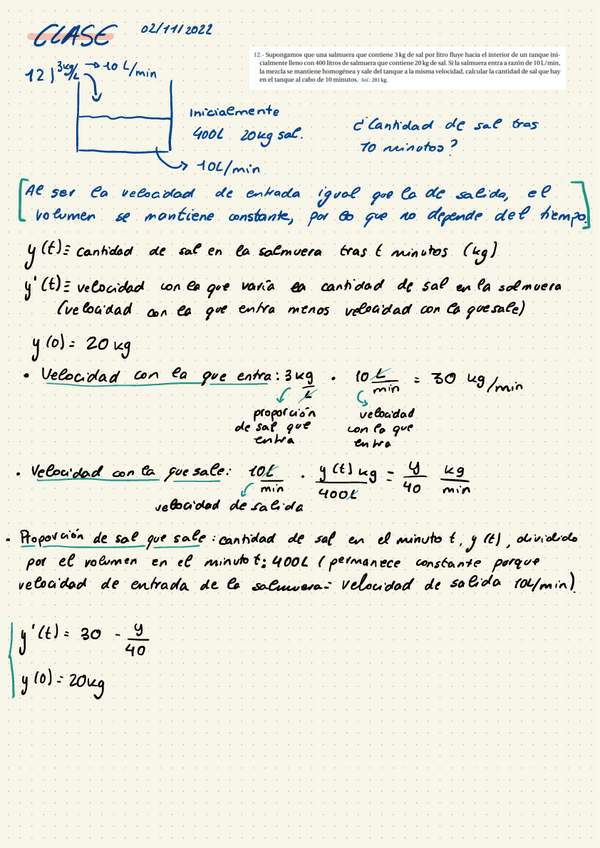 CLASE 02/11/2022
12.- Supongamos que una salmuera que contiene 3 kg de sal por litro fluye hacia el interior de un tanque ini-
cialmente lleno con 400 litros de salmuera que contiene 20 kg de sal. Si la salmuera entra a razón de 10 L/min,
la mezcla se mantiene homogénea y sale del tanque a la misma velocidad, calcular la cantidad de sal que hay
en el tanque al cabo de 10 minutos. Sol.: 281 kg.
12) 3kg/L → 10 L/min
Inicialmente
400L 20kg sal.
¿Cantidad de sal tras
10 minutos?
→ 10L/min
[Al ser la velocidad de entrada igual que la de salida, el
volumen se mantiene constante, por lo que no depende del tiempo.]
y(t) ≡ cantidad de sal en la salmuera tras t minutos (kg)
y'(t) ≡ velocidad con la que varía la cantidad de sal en la salmuera
(velocidad con la que entra menos velocidad con la que sale)
y(0) = 20 kg
• Velocidad con la que entra: 3 kg/L · 10 L/min = 30 kg/min
proporción de sal que entra
velocidad con la que entra
• Velocidad con la que sale: 10L/min · y(t) kg/400L = y/40 kg/min
velocidad de salida
• Proporción de sal que sale: cantidad de sal en el minuto t, y(t), dividido
por el volumen en el minuto t: 400L (permanece constante porque
velocidad de entrada de la salmuera = velocidad de salida 10L/min).
y'(t) = 30 - y/40
y(0) = 20kg